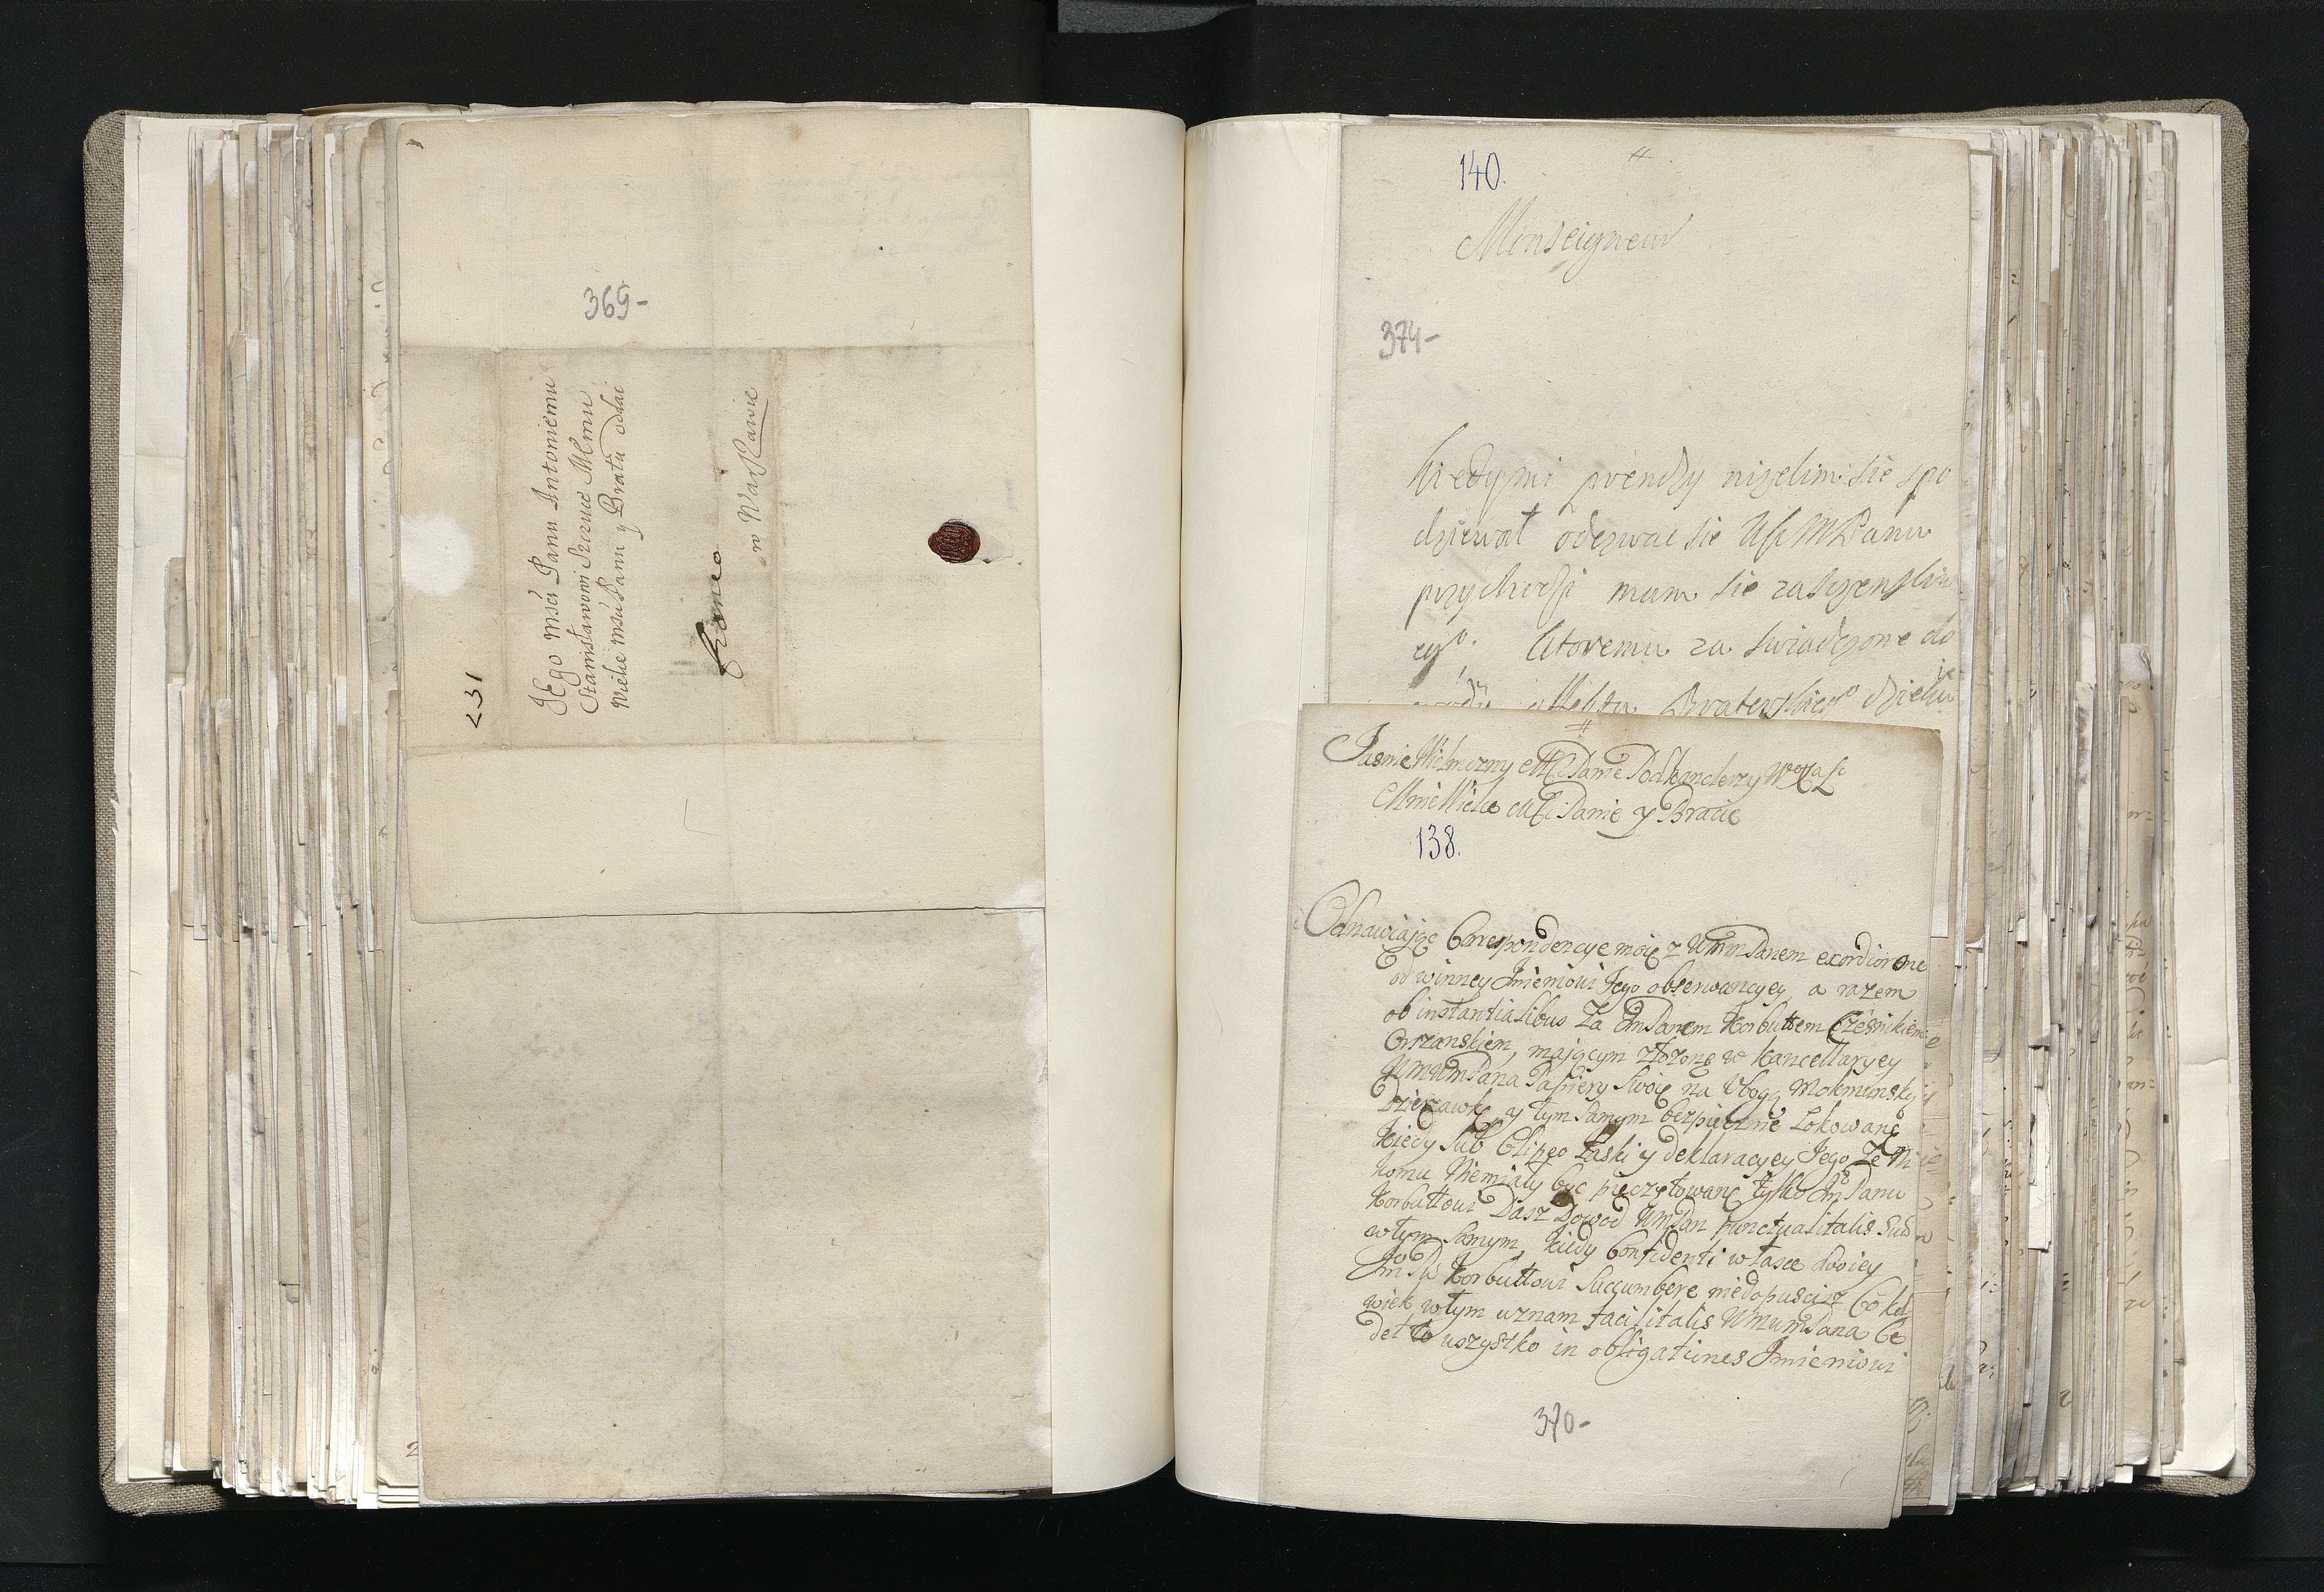 369-
231
JEgo mści Panu Antoniemu
Stanisławowi Szczuc MEmu
Wielce mściu Panu y Bratu oddać
Franco
w Warszawie
140.
Monseigneur
374-
kiedy mi prendzy niżelim sie spo
dziewał odezwac sie Usc MPanu
przychodzi mam sie za szczensliw
ego. ktoremu za swiadczone do
Braterskiego dzieku
JasnieWielmozny MSci Panie Podkanclerzy
Mnie Wielce MSci Panie y Bracie
138.
Odnawiając Correspondencye moię z UMmPanem exordior one
od winney Imieniowi Jego obserwancyey a razem
ob instantialibus za ImPanem Korbuttem Cześnikiem
Orszanskiem, mającym złozone w kancellaryey
UMMmPana Papiery swoie na Ubogą Mokmunską
Dzierzawkę, y tym samym bezpiecznie Lokowane
kiedy sub Clipeo Łaski y deklaracyey Jego ze ni
komu Niemiały byc pieczętowane tylko ImPanu
Korbuttowi Dasz Dowod UMPan punctualitatis suæ
w tym samym, kiedy Confidenti w łasce swoiey
Korbuttowi Succumbere niedopuscisz Cokol
wiek w tym uznam facilitatis UMmmPana be
det to wszystko in obligationes Imieniowi
370-